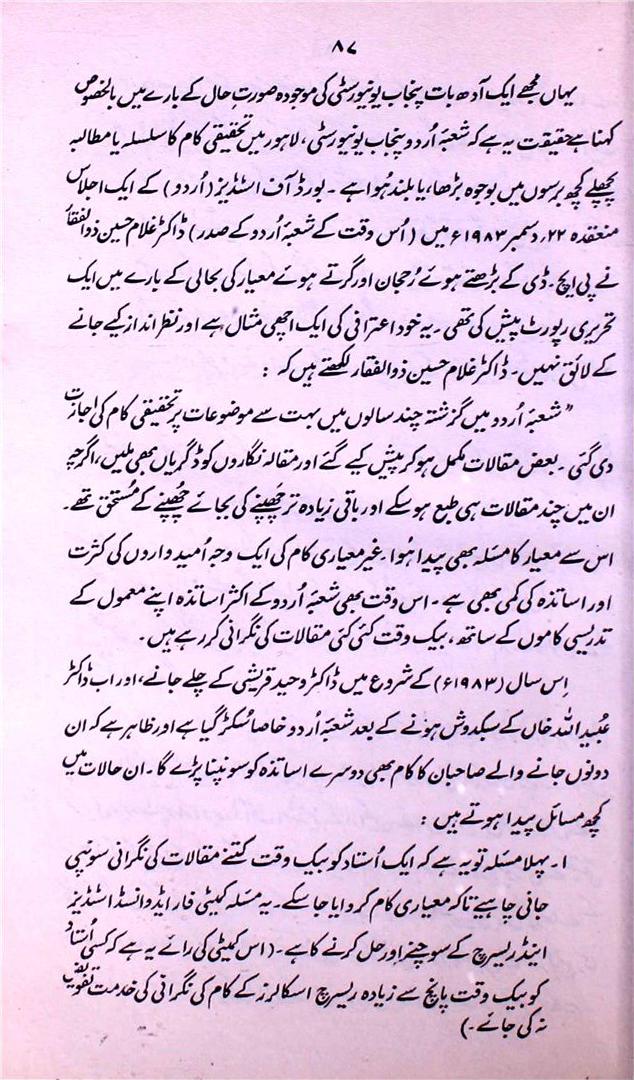 ۸۷
یہاں مجھے ایک آدھ بات پنجاب یونیورسٹی کی موجودہ صورتِ حال کے بارے میں بالخصوص
کہنا ہے حقیقت یہ ہے کہ شعبۂ اُردو پنجاب یونیورسٹی، لاہور میں تحقیقی کام کا سلسلہ یا مطالبہ
پچھلے کچھ برسوں میں بوجوہ بڑھا، یا بلند ہُوا ہے ۔ بورڈ آف اسٹڈیز (اُردو) کے ایک اجلاس
منعقدہ ۲۲؍ دسمبر ۱۹۸۳ء میں (اُس وقت کے شعبۂ اُردو کے صدر) ڈاکٹر غلام حسین ذوالفقار
نے پی ایچ۔ڈی کے بڑھتے ہوئے رُجحان اور گرتے ہوئے معیار کی بحالی کے بارے میں ایک
تحریری رپورٹ پیش کی تھی ۔ یہ خود اعترافی کی ایک اچھی مثال ہے اور نظر انداز کیے جانے
کے لائق نہیں۔ ڈاکٹر غلام حسین ذوالفقار لکھتے ہیں کہ :
”شعبۂ اُردو میں گزشتہ چند سالوں میں بہت سے موضوعات پر تحقیقی کام کی اجازت
دی گئی ۔ بعض مقالات مکمل ہو کر پیش کیے گئے اور مقالہ نگاروں کو ڈگریاں بھی ملیں، اگرچہ
ان میں چند مقالات ہی طبع ہو سکے اور باقی زیادہ تر چَھپنے کی بجائے چُھپنے کے مُستحق تھے۔
اس سے معیار کا مسٔلہ بھی پیدا ہُوا ۔ غیر معیاری کام کی ایک وجہ اُمیدواروں کی کثرت
اور اساتذہ کی کمی بھی ہے ۔ اس وقت بھی شعبۂ اُردو کے اکثر اساتذہ اپنے معمول کے
تدریسی کاموں کے ساتھ، بیک وقت کئی کئی مقالات کی نگرانی کر رہے ہیں۔
اِس سال (۱۹۸۳ء) کے شروع میں ڈاکٹر وحید قریشی کے چلے جانے، اور اب ڈاکٹر
عُبید اللہ خاں کے سبکدوش ہونے کے بعد شعبۂ اُردو خاصا سُکڑ گیا ہے اور ظاہر ہے کہ ان
دونوں جانے والے صاحبان کا کام بھی دوسرے اساتذہ کو سونپنا پڑے گا ۔ ان حالات میں
کچھ مسائل پیدا ہوتے ہیں :
۱۔ پہلا مسٔلہ تو یہ ہے کہ ایک اُستاد کو بیک وقت کتنے مقالات کی نگرانی سونپی
جانی چاہیے تاکہ معیاری کام کروایا جا سکے۔ یہ مسٔلہ کمیٹی فار ایڈوانسڈ اسٹڈیز
اینڈ ریسرچ کے سوچنے اور حل کرنے کا ہے ۔ (اس کمیٹی کی رائے یہ ہے کہ کسی اُستاد
کو بیک وقت پانچ سے زیادہ ریسرچ اسکالرز کے کام کی نگرانی کی خدمت تفویض
نہ کی جائے۔)